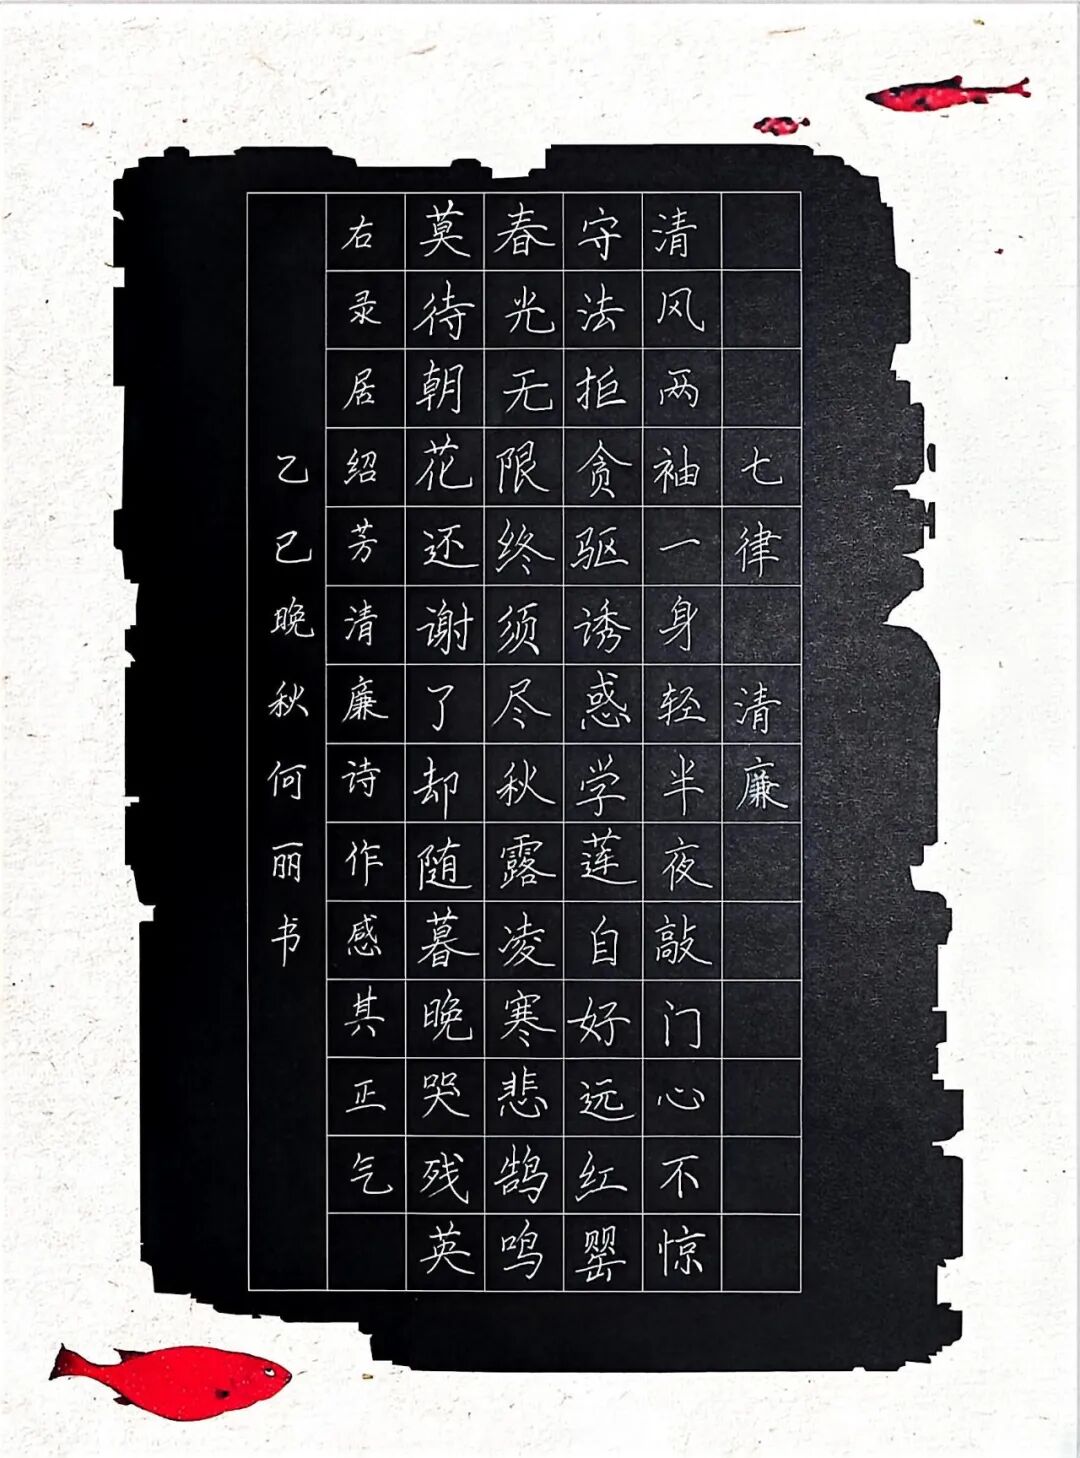 七律 清廉
清风两袖一身轻半夜敲门心不惊
守法拒贪驱诱惑学莲自好远红罂
春光无限终须尽秋露凌寒悲鹄鸣
莫待朝花还谢了却随暮晚哭残英
右录居绍芳清廉诗作感其正气
乙巳晚秋何丽书